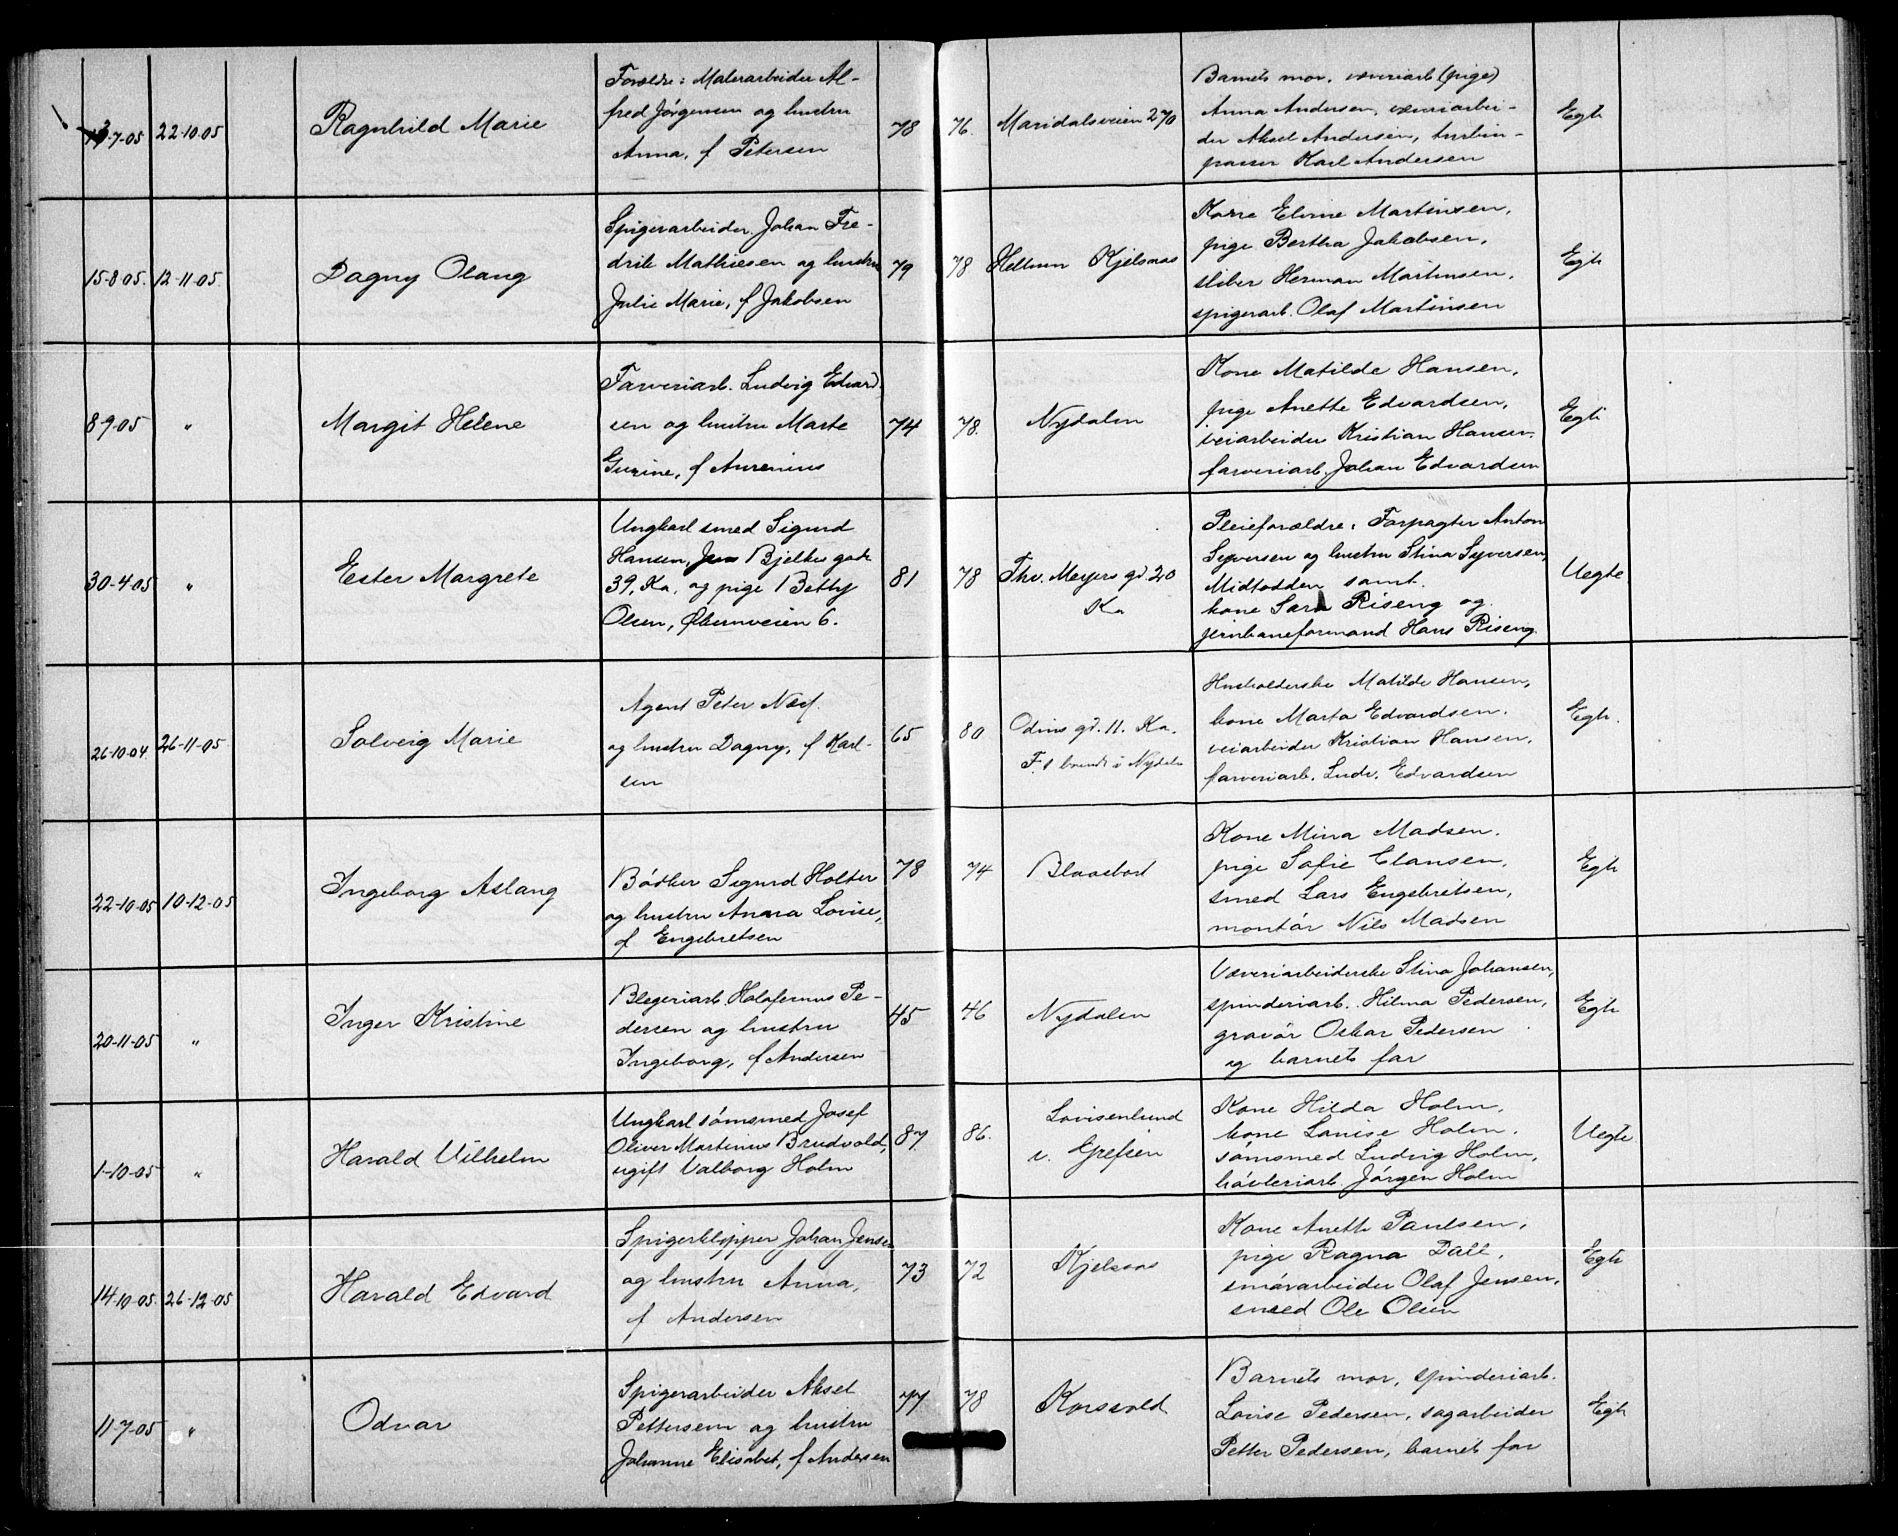 13-7-05 22-10-05 Ragnhild Marie
Forældre: Malerarbeider Al-
fred Jörgensen og hustru
Anna, f Petersen
78 76. Maridalsveien 270
Barnets mor, væveriarb (pige)
Anna Andersen, væveriarbei-
der Aksel Andersen, turbin-
passer Karl Andersen
Egte
15-8-05. 12-11-05. Dagny Olaug
Spigerarbeider Johan Fre-
drik Mathiesen og hustru
Julie Marie, f Jakobsen
79 78 Kjelsaas
Kone Elvine Martinsen,
pige Bertha Jakobsen,
sliber Herman Martinsen,
spigerarb. Olaf Martinsen
Egte
8-9-05 " Margit Helene
Farveriarb. Ludvig Edvard
sen og hustru Marte
Gurine, f Aurenius
74 78. Nydalen
Kone Matilde Hansen,
pige Anette Edvardsen,
veiarbeider Kristian Hansen,
farveriarb. Johan Edvardsen
Egte
30-4-05 " Ester Margrete
Ungkarl smed Sigurd
Hansen, Jens Bjelkes gade
39, Ka, og pige Betty
Olsen, Økernveien 6.
81 78 Thv. Meyers gd. 20
Ka
Pleieforældre: Forpagter Anton
Syversen og hustru Stina Syversen,
Midtodden samt
kone Sara Riseng og
jernbaneformand Hans Riseng
Uegte
26-10-04 26-11-05 Solveig Marie
Agent Peter Næf.
og hustru Dagny, f Karl-
sen
65 80 Odins gd. 11. Ka.
F. i Nydalen
Husholderske Matilde Hansen,
kone Marta Edvardsen.
veiarbeider Kristian Hansen,
farveriarb. Ludv. Edvardsen
Egte.
22-10-05 10-12-05 Ingeborg Aslaug
Bödker Sigurd Holter
og hustru Anna Lovise,
f Engebretsen
78 74 Blaasbort
Kone Mina Madsen.
pige Sofie Clausen,
smed Lars Engebretsen,
montör Nils Madsen
Egte
20-11-05 " Inger Kristine
Blegeriarb. Holofernus Pe-
dersen og hustru
Ingeborg, f Andersen
45 46 Nydalen
Væveriarbeiderske Stina Johansen,
spinderiarb. Hilma Pedersen,
gravör Oskar Pedersen
og barnets far
Egte
1-10-05 " Harald Vilhelm
Ungkarl sömsmed Josef
Oliver Martinius Brudvold,
ugift Valborg Holm
87 86. Lovisenlund
v. Grefsen
Kone Hilda Holm,
kone Lovise Holm.
sömsmed Ludvig Holm,
hövleriarb. Jörgen Holm
Uegte
14-10-05. 26-12-05 Harald Edvard
Spigerklipper Johan Jensen
og hustru Anna,
f Andersen
73 72 Kjelsaas
Kone Anette Paulsen,
pige Ragna Dall,
smörarbeider Olaf Jensen,
smed Ole Olsen
Egte
11-7-05 " Odvar
Spigerarbeider Aksel
Pettersen og hustru
Johanne Elisabet, f Andersen
77 78 Korsvold
Barnets mor, spinderiarb.
Lovise Pedersen, sagarbeider
Petter Pedersen, barnets far
Egte